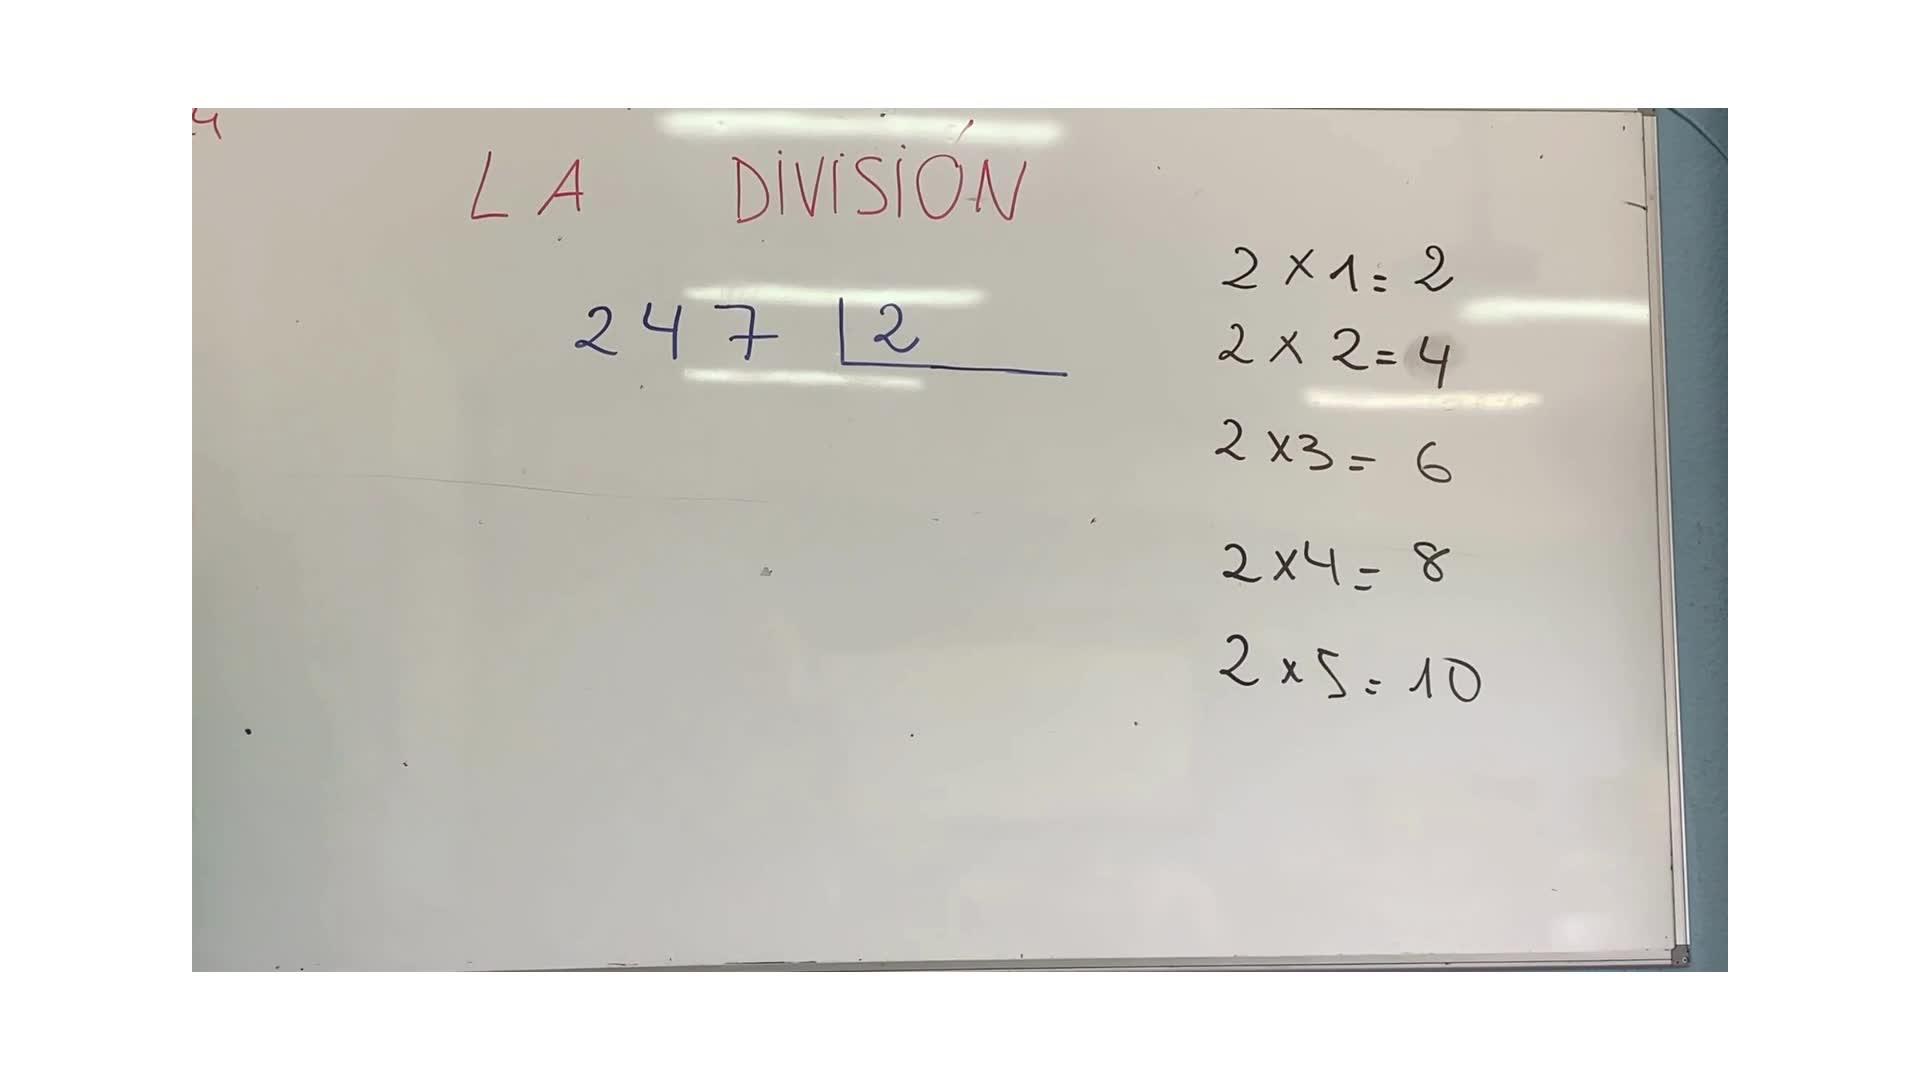 4
LA DIVISIÓN
247 |2
2 x 1 = 2
2 x 2 = 4
2 x 3 = 6
2 x 4 = 8
2 x 5 = 10